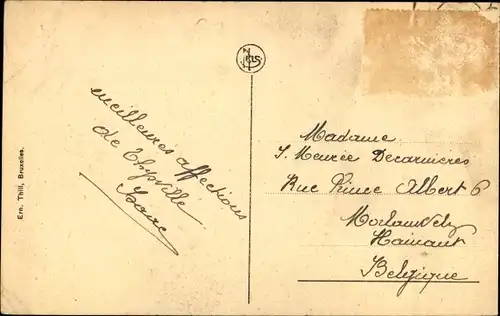 Ern. Thill, Bruxelles.
NELS
meilleures affections
de Thyville
Isaac
Madame
J. Meurée Decarnières
Rue Prince Albert 6
Morlanwelz
Hainaut
Belgique